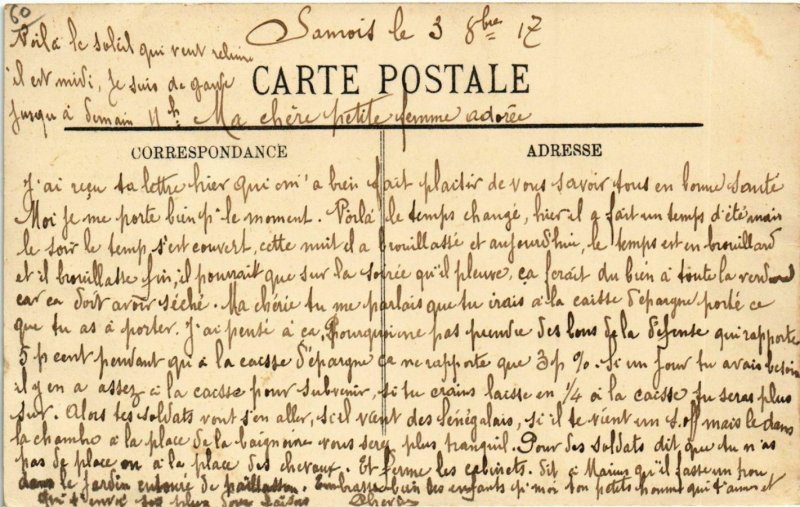 60
Samois le 3 8bre 17
Voilà le soleil qui veut reluire
il est midi, Je suis de garde
Jusqu'à demain 11h
CARTE POSTALE
Ma chère petite femme adorée
CORRESPONDANCE
ADRESSE
J'ai reçu ta lettre hier qui m'a bien fait plaisir de vous savoir tous en bonne santé
Moi je me porte bien p. le moment. Voilà le temps changé, hier il a fait un temps d'été mais
le soir le temp s'est couvert, cette nuit il a brouillassé et aujourd'hui, le temps est en brouillard
et il brouillasse fin, il pourrait que sur la soirée qu'il pleuve, ça ferait du bien à toute la verdure
car ça doit avoir séché. Ma chérie tu me parlais que tu irais à la caisse d'épargne porté ce
que tu as à porter. J'ai pensé à ça, Pourquoi ne pas prendre des bons de la défense qui rapporte
5 p cent pendant qui à la caisse d'épargne ça ne rapporte que 3 p %. Si un jour tu avais besoin
il y en a assez à la caisse pour subvenir, si tu crains laisse en 1/4 à la caisse tu seras plus
sur. Alors tes soldats vont s'en aller, si il vient des Sénégalais, si il te vient un s.off mais le dans
la chambre à la place de la baignoire vous serez plus tranquil. Pour des soldats dit que tu n'as
pas de place ou à la place des chevaux. Et ferme les cabinets. dit à Marius qu'il fasse un trou
dans le jardin entouré de paillasson. Embrasse bien les enfants p. moi ton petit homme qui t'aime et
qui t'envoi ses plus doux baisers